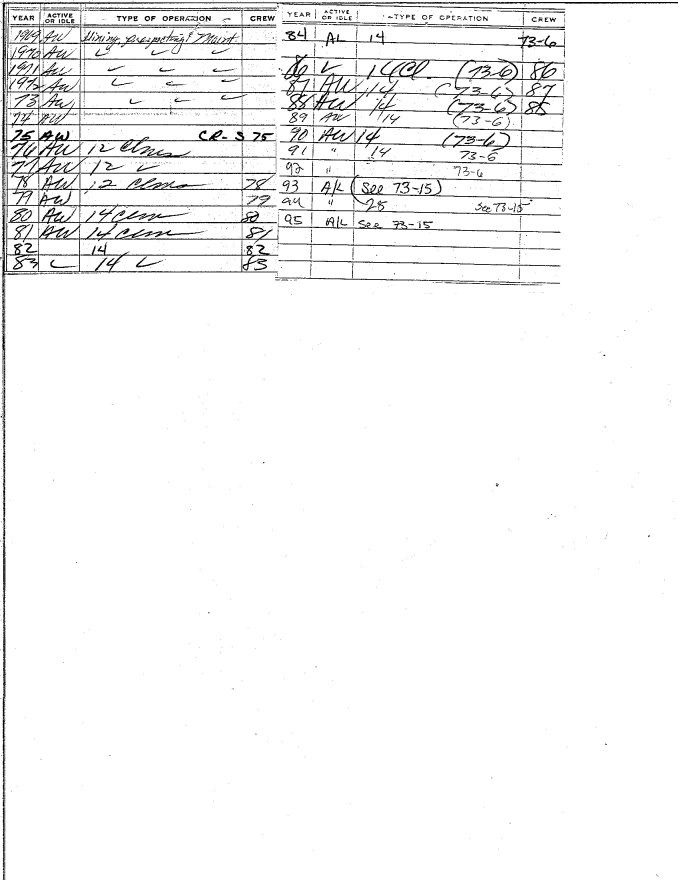 YEAR ACTIVE OR IDLE TYPE OF OPERATION CREW
1969 AW Mining, prospecting & Maint.
1970 AW
1971 AW
1972 AW
73 AW
74 AW
75 AW CR-S 75
76 AW 12 Clms
77 AW 12
78 AW 12 Clms 78
79 AW 79
80 AW 14 Clm 80
81 AW 14 Clm 81
82 14 82
83 14 83
YEAR ACTIVE OR IDLE TYPE OF OPERATION CREW
84 AL 14 73-6
86 14 Cl (73-6) 86
87 AW 14 (73-6) 87
88 AW 14 (73-6) 88
89 AW 14 (73-6)
90 AW 14 (73-6)
91 " 14 73-6
92 " 73-6
93 A/L (See 73-15)
94 " 28 See 73-15
95 A/L See 73-15